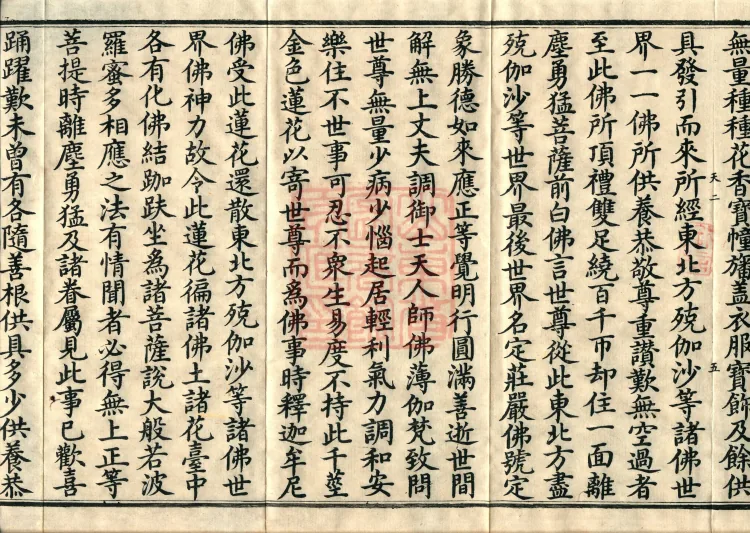 無量種種花香寶幢旛盖衣服寶飾及餘供
具發引而來所經東北方殑伽沙等諸佛世
天二
五
界一一佛所供養恭敬尊重讃歎無空過者
至此佛所頂禮雙足繞百千帀却住一面離
塵勇猛菩薩前白佛言世尊從此東北方盡
殑伽沙等世界最後世界名定莊嚴佛號定
象勝德如來應正等覺明行圓滿善逝世間
解無上丈夫調御士天人師佛薄伽梵致問
世尊無量少病少惱起居輕利氣力調和安
樂住不世事可忍不衆生易度不持此千莖
金色蓮花以寄世尊而爲佛事時釋迦牟尼
佛受此蓮花還散東北方殑伽沙等諸佛世
界佛神力故令此蓮花徧諸佛土諸花臺中
各有化佛結跏趺坐爲諸菩薩說大般若波
羅蜜多相應之法有情聞者必得無上正等
菩提時離塵勇猛及諸眷屬見此事已歡喜
踊躍歎未曾有各隨善根供具多少供養恭